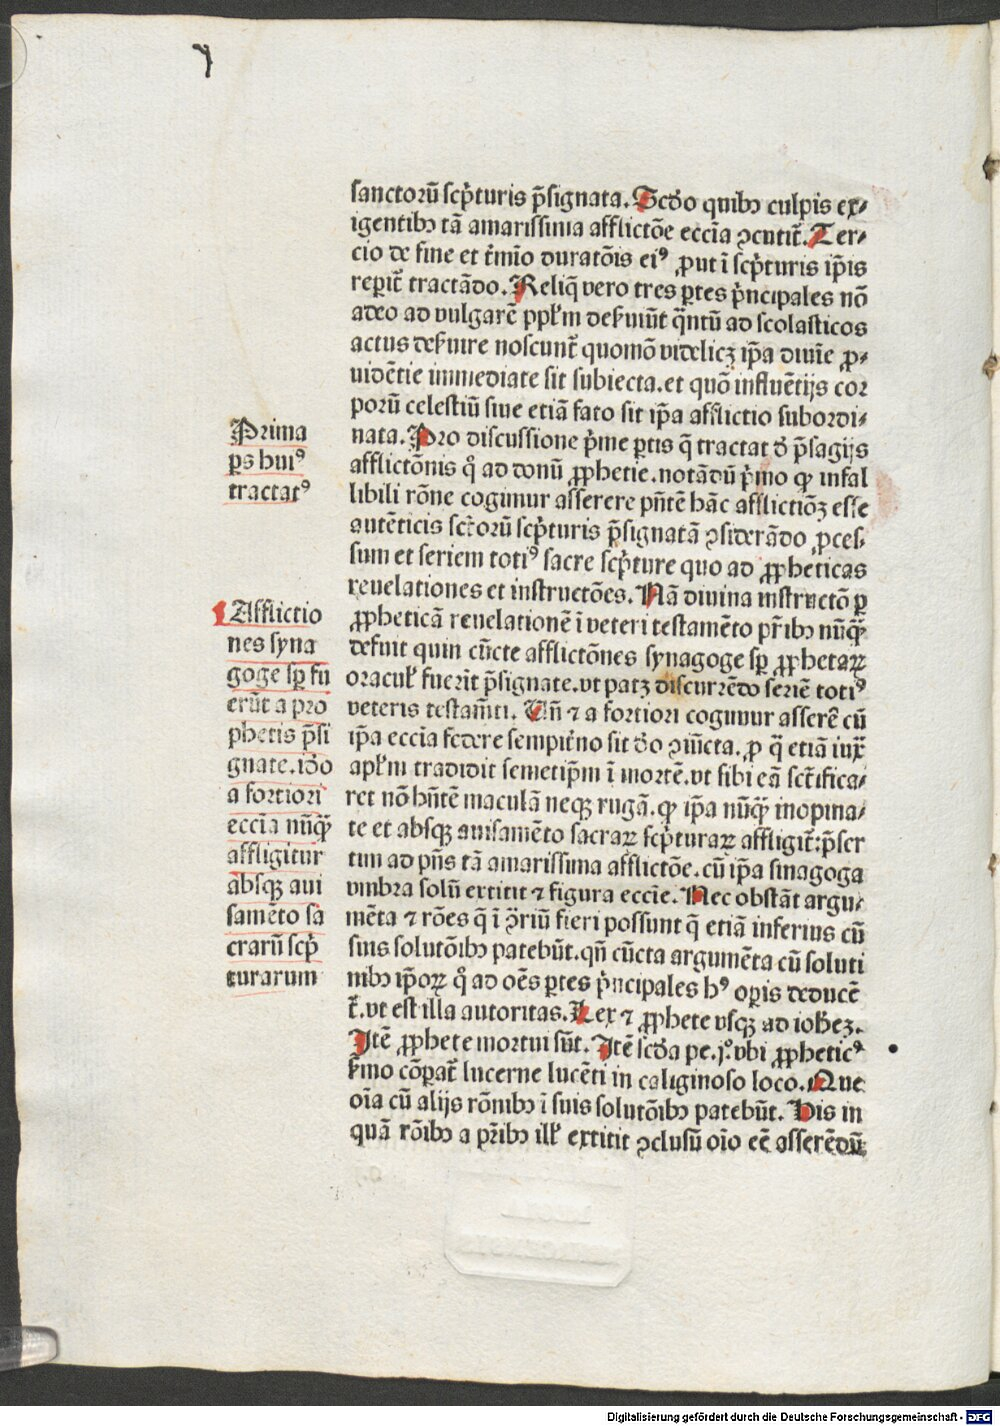 sanctorū scṗturis p̄signata. Scd̄o quibꝰ culpis ex⸗
igentibꝰ tā amarissima afflictōe eccīa ꝯcutit᷑. Ter⸗
cio de fine et t̄mīo duratōis eiꝰ ꝓut ī scṗturis ip̄is
reꝑit᷑ tractādo. Reliq̄ vero tres ꝑtes ṗncipales nō
adeo ad vulgarē ppl̄m deẜuiūt q̄ntū ad scolasticos
actus deẜuire noscunt᷑ quomō videlicꝫ ip̄a diuīe ꝓ⸗
uidētie immediate sit subiecta. et quō influētijs cor
porū celestiū siue etiā fato sit ip̄a afflictio subordi⸗
nata. Pro discussione ṗme ꝑtis q̄ tractat đ p̄sagijs
afflictōnis q̊ ad donū ꝓphetie. notādū ṗmo ꝙ infal
libili rōne cogimur asserere pn̄tē hāc afflictiōꝫ esse
autēticis sct̄orū scṗturis p̄signatā ꝯsiderādo ꝓces⸗
sum et seriem totiꝰ sacre scṗture quo ad ꝓpheticas
reuelationes et instructōes. Nā diuina instructō ꝑ
ꝓpheticā reuelationē ī veteri testamēto pr̄ibꝰ nūꝙ̄
defuit quin cūcte afflictōnes synagoge sꝑ ꝓphetaꝝ
oracul̄ fuerīt p̄signate. vt patꝫ discurrēdo seriē totiꝰ
veteris testam̄ti. Vn̄ ⁊ a fortiori cogimur asserē cū
ip̄a eccīa federe sempit̄no sit đo ꝯiūcta. ꝓ q̄ etiā iux̄
apl̄m tradidit semetip̄m ī mortē. vt sibi eā sct̄ifica⸗
ret nō hn̄tē maculā neqꝫ rugā. ꝙ ip̄a nūꝙ̄ inopina⸗
te et absqꝫ auisamēto sacraꝝ scṗturaꝝ affligit᷑: p̄ser
tim ad pn̄s tā amarissima afflictōe. cū ip̄a sinagoga
vmbra solū extitit ⁊ figura eccīe. Nec obstāt argu⸗
mēta ⁊ rōes q̄ ī ꝯ̄riū fieri possunt q̄ etiā inferius cū
suis solutōibꝰ patebūt. qn̄ cūcta argumēta cū soluti
nibꝰ ip̄oꝝ q̊ ad oēs ꝑtes ṗncipales hꝰ oꝑis deducē
t᷑. vt est illa autoritas. Lex ⁊ ꝓphete vsqꝫ ad ioħeꝫ.
Itē ꝓphete mortui sūt. Itē scđa pe. j̊. vbi ꝓpheticꝰ
ẜmo cōꝑat᷑ lucerne lucēti in caliginoso loco. Que
oīa cū alijs rōnibꝰ ī suis solutōibꝰ patebūt. His in
quā rōibꝰ a pr̄ibꝰ ill̄ extitit ꝯclusū oīo eē asserēdū
Prima
ꝑs huiꝰ
tractatꝰ
Afflictio
nes syna
goge sꝑ fu
erūt a pro
phetis p̄si
gnate. idō
a fortiori
eccīa nūꝙ̄
affligitur
absqꝫ aui
samēto sa
crarū scṗ
turarum
Digitalisierung gefördert durch die Deutsche Forschungsgemeinschaft - DFG